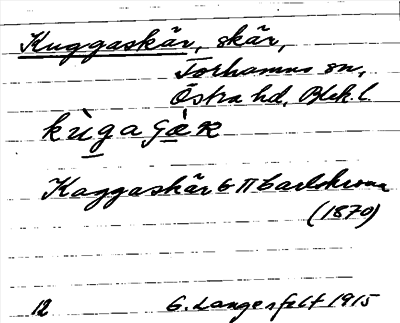 Kuggaskär, skär,
Torhamns sn,
Östra hd, Blek. l.
kùga gæ̀R
Kaggaskär G Π Carlskrona
(1870)
12 G. Langenfelt 1915